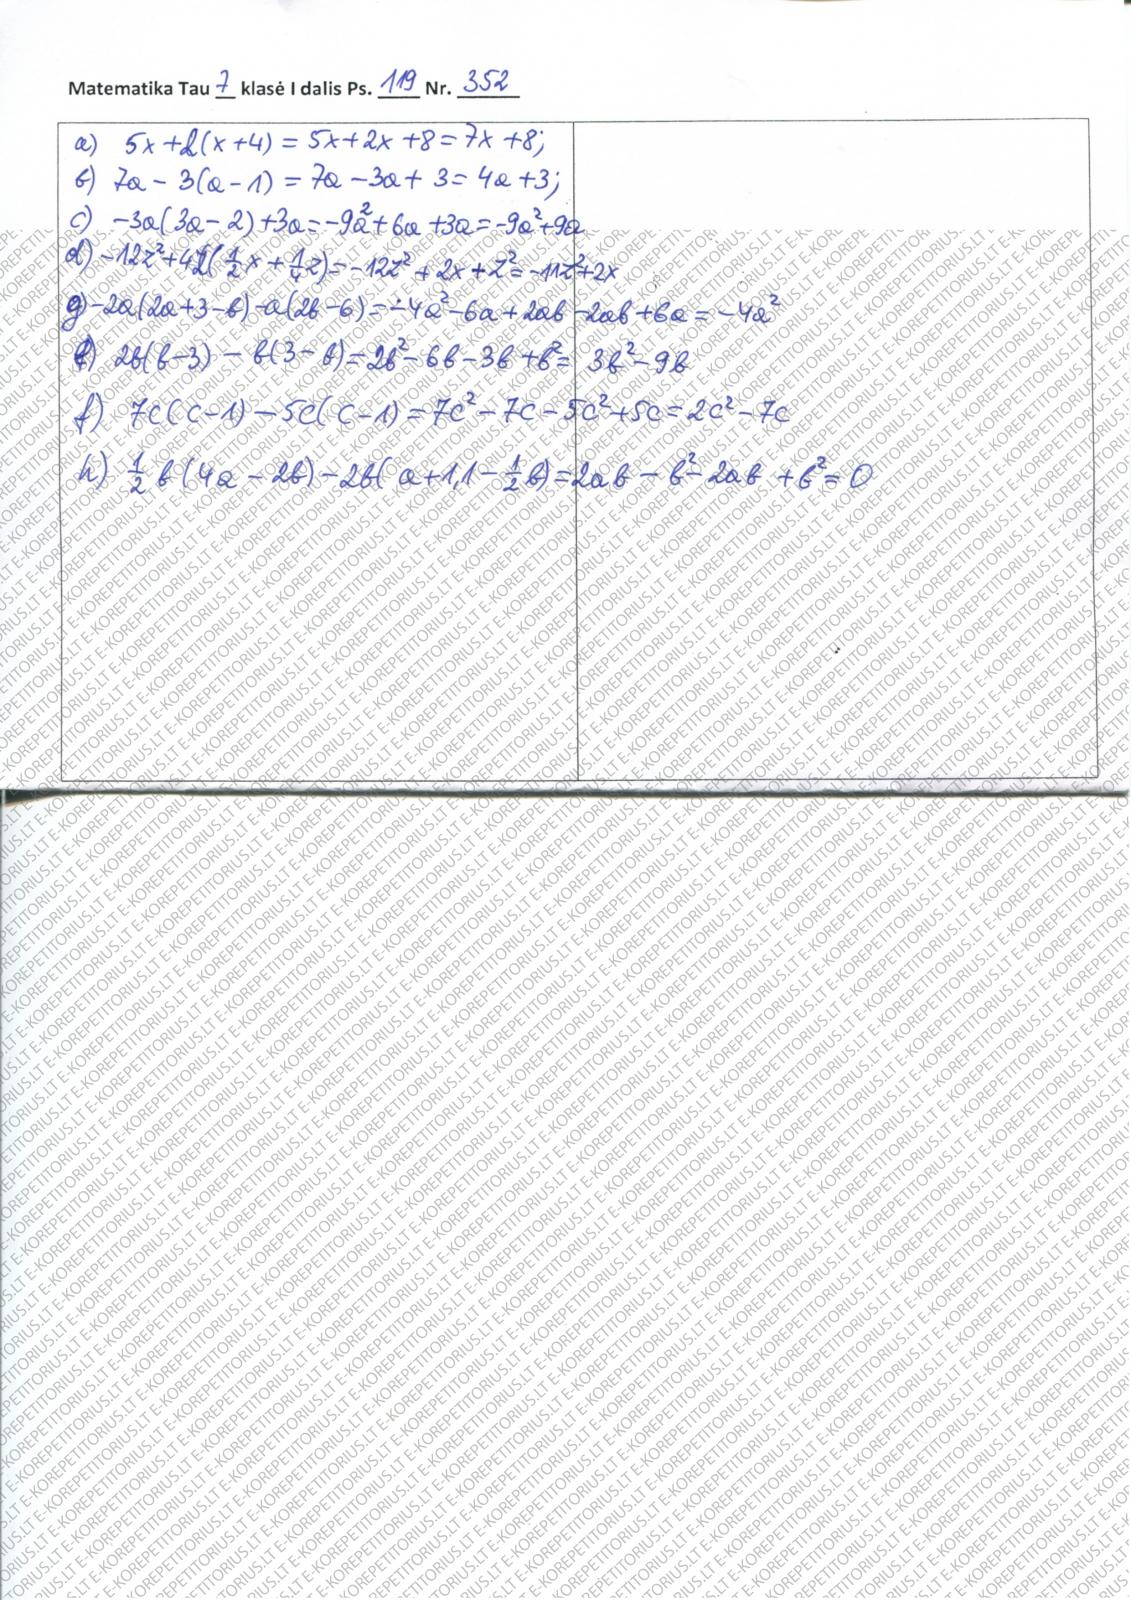 Matematika Tau 7 klasė I dalis Ps. 119 Nr. 352
a) 5x+2(x+4) = 5x+2x+8=7x+8;
b) 7a - 3(a-1) = 7a -3a+3= 4a+3;
c) -3a(3a-2)+3a=-9a²+6a+3a=-9a²+9a
d) -12z²+4(½x+¼z)=-12z²+2x+z²=-11z²+2x
g) -2a(2a+3-b)-a(2b-6)=-4a²-6a+2ab-2ab+6a=-4a²
2b(b-3) - b(3-b)=2b²-6b-3b+b²= 3b²-9b
f) 7c(c-1)-5c(c-1)=7c²-7c-5c²+5c=2c²-7c
h) ½b(4a-2b)-2b(a+1,1-½b)=2ab-b²-2ab+b²=0
E-KOREPETITORIUS.LT